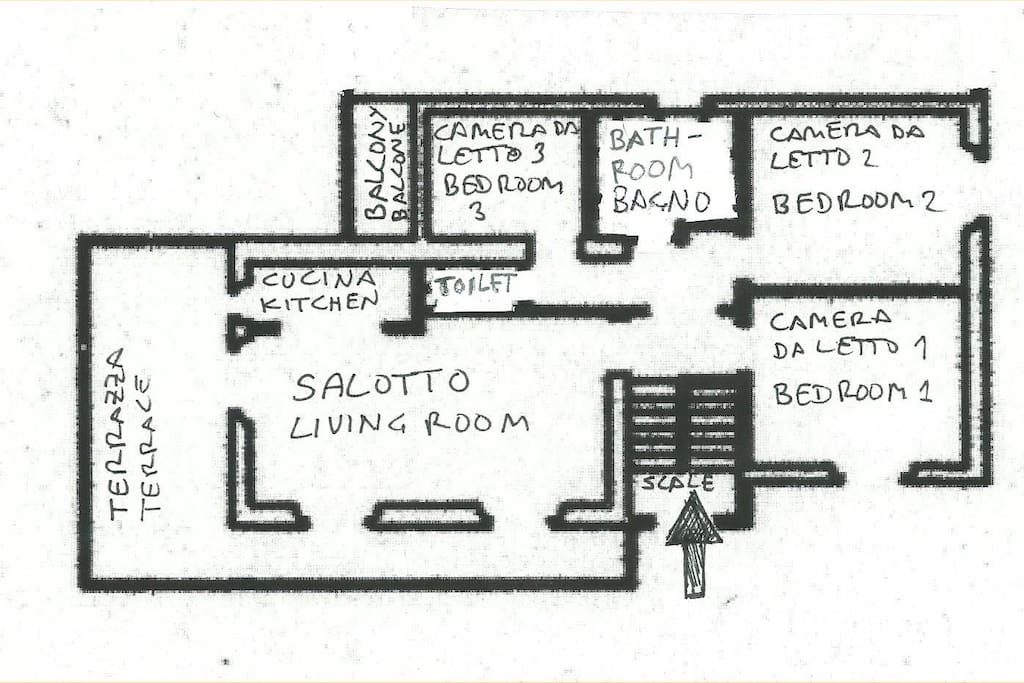 BALCONY
BALCONE
CAMERA DA
LETTO 3
BEDROOM
3
BATH-
ROOM
BAGNO
CAMERA DA
LETTO 2
BEDROOM 2
CUCINA
KITCHEN
TOILET
CAMERA
DA LETTO 1
BEDROOM 1
SALOTTO
LIVING ROOM
TERRAZZA
TERRACE
SCALE